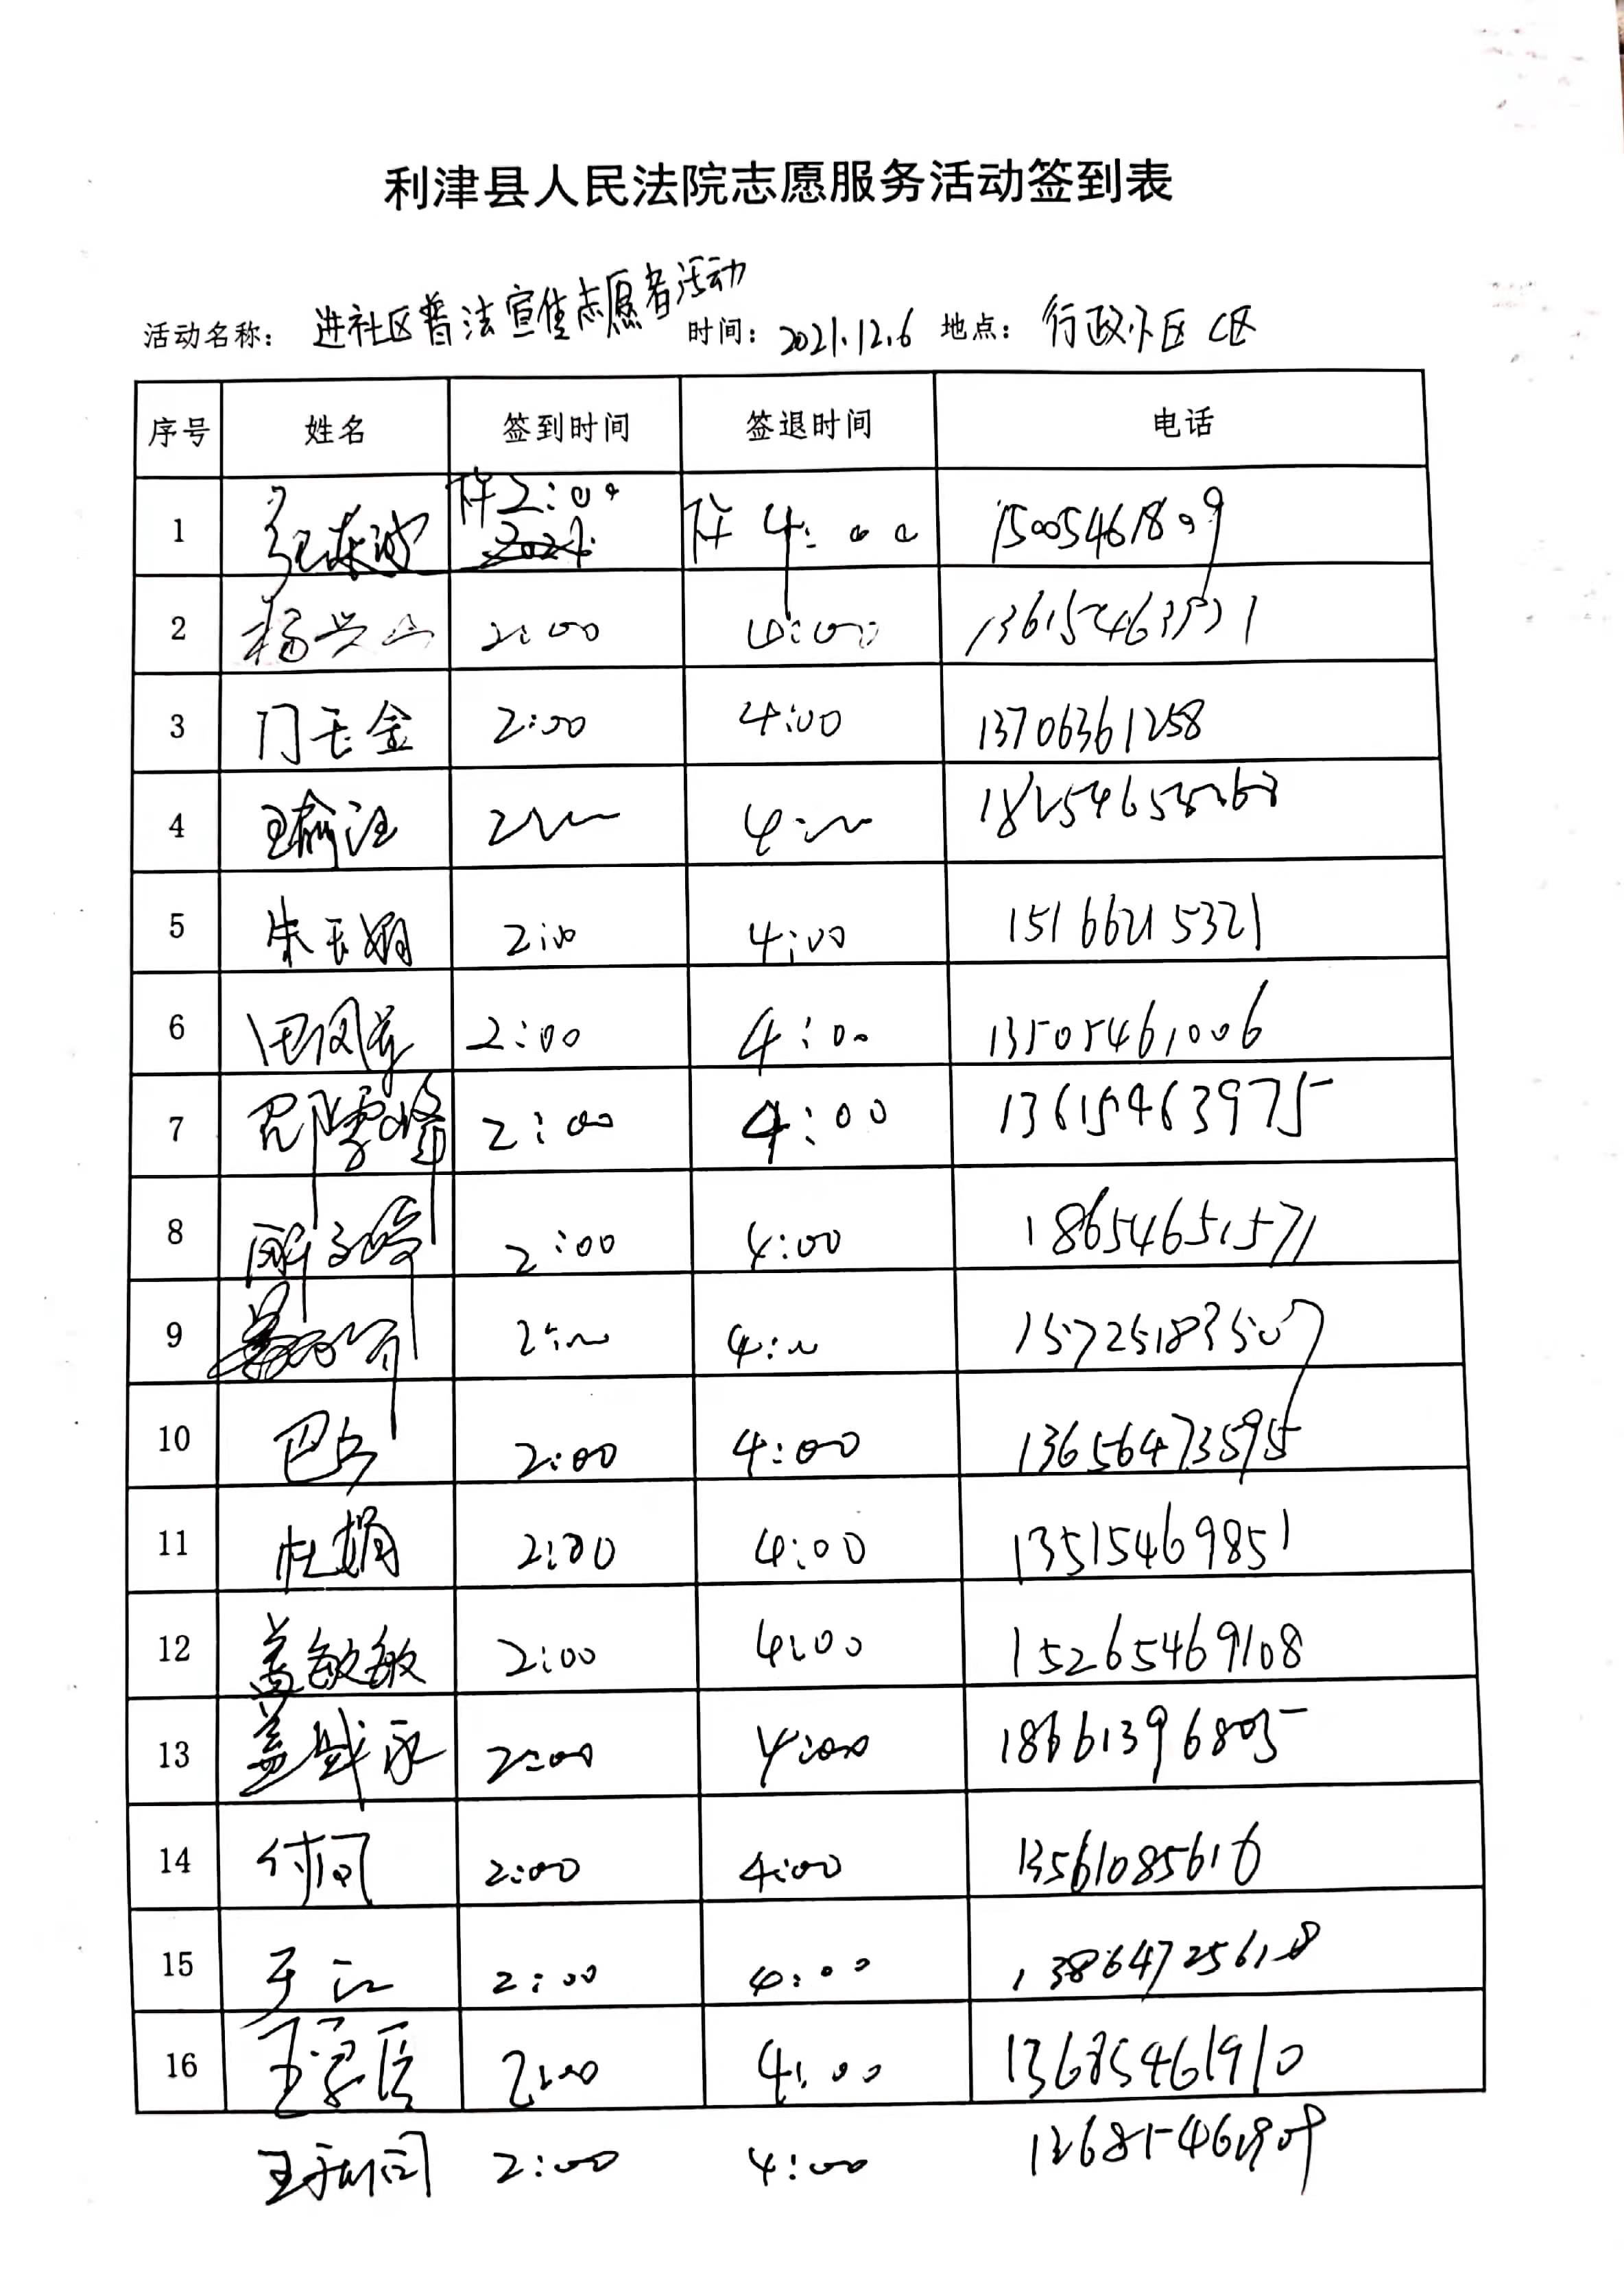 利津县人民法院志愿服务活动签到表
活动名称: 进社区普法宣传志愿者活动 时间: 2021.12.6 地点: 行政小区C区
序号 姓名 签到时间 签退时间 电话
1 下午2:00 下午4:00 15005461809
2 杨兴山 2:00 4:00
3 门玉金 2:00 4:00 13706361258
4 王 2:00 4:00
5 朱玉娟 2:00 4:00 15166215321
6 2:00 4:00 13505461006
7 2:00 4:00 13615463975
8 2:00 4:00 18654651571
9 2:00 4:00 15725183507
10 巴兵 2:00 4:00 13656473595
11 杜娟 2:00 4:00 13515469851
12 盖敏敏 2:00 4:00 15265469108
13 盖胜永 2:00 4:00 18661396805
14 付闪 2:00 4:00 13561085616
15 于江 2:00 4:00 13864725618
16 2:00 4:00 13685461910
2:00 4:00